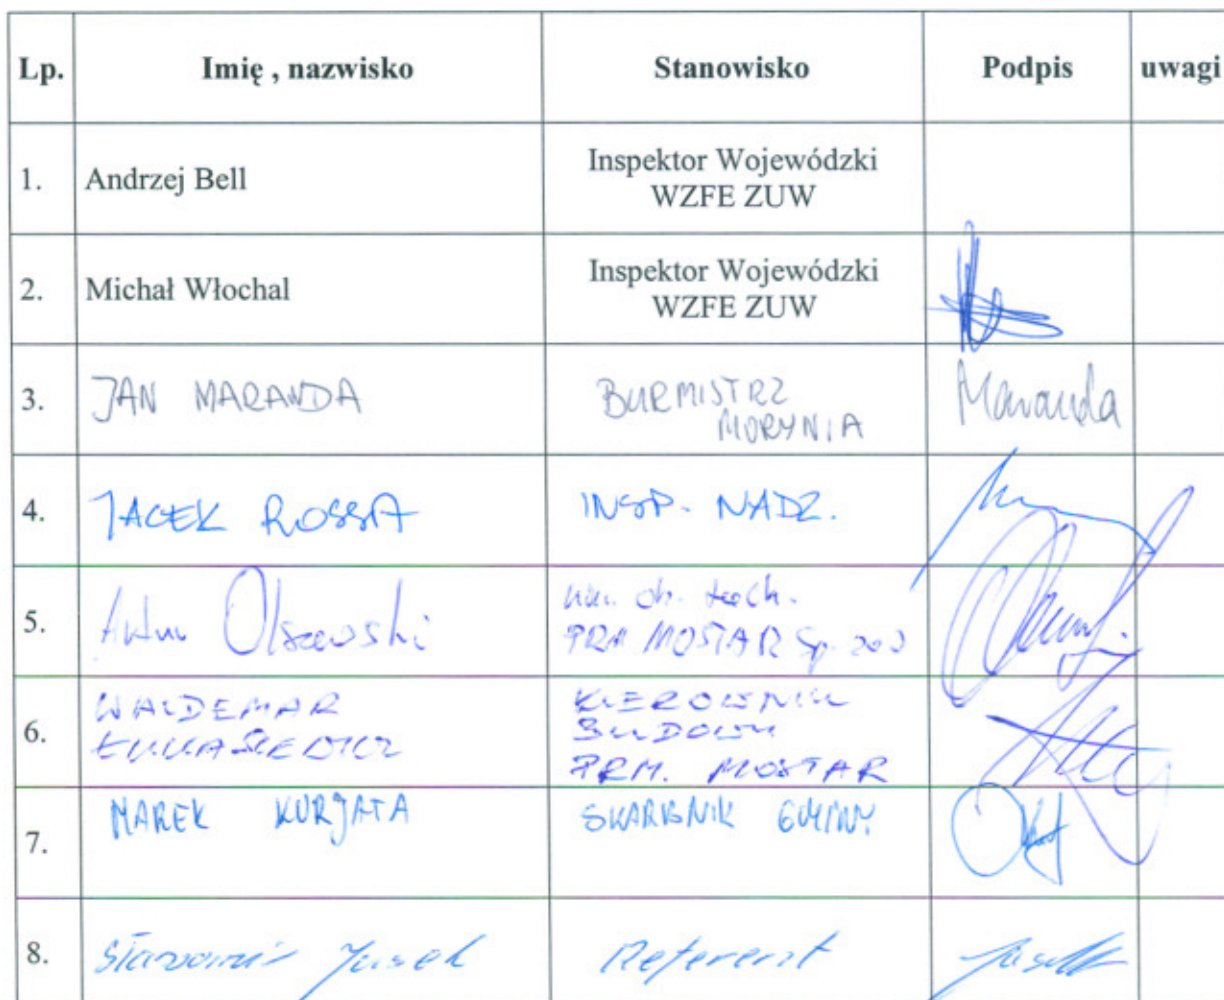 Lp. Imię , nazwisko Stanowisko Podpis uwagi
1. Andrzej Bell Inspektor Wojewódzki
WZFE ZUW
2. Michał Włochal Inspektor Wojewódzki
WZFE ZUW
3. JAN MARANDA BURMISTRZ Maranda
MORYNIA
4. JACEK ROSSA INSP. NADZ.
5. Artur Olszewski tech.
PRM MOSTAR Sp. zoo
6. WALDEMAR KIEROWNIK
ŁUKASIEWICZ BUDOWY
PRM. MOSTAR
7. MAREK KURJATA SKARBNIK GMINY
8. Sławomir Jasek Referent Jasek